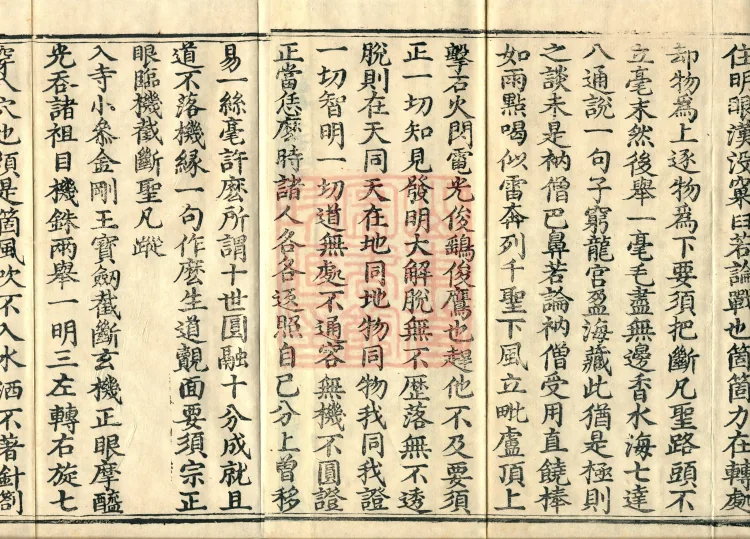 住明眼漢没窠臼若論戰也箇箇力在轉處
却物為上逐物為下要須把斷凡聖路頭不
立毫末然後舉一毫毛盡無邊香水海七達
八通說一句子窮龍宮盈海藏此猶是極則
之談未是衲僧巴鼻若論衲僧受用直饒棒
如雨點喝似雷奔列千聖下風立毗盧頂上
擊石火閃電光俊鷂俊鷹也趕他不及要須
正一切知見發明大解脫無不歷落無不透
脫則在天同天在地同地物同物我同我證
一切智明一切道無處不通容無機不圓證
正當恁麽時諸人各各返照自己分上曾移
易一絲毫許麽所謂十世圓融十分成就且
道不落機緣一句作麽生道覿面要須宗正
眼臨機截斷聖凡蹤
入寺小參金剛王寶劒截斷玄機正眼摩醯
光吞諸祖目機銖兩舉一明三左轉右旋七
穿八穴也須是箇風吹不入水洒不著針劄